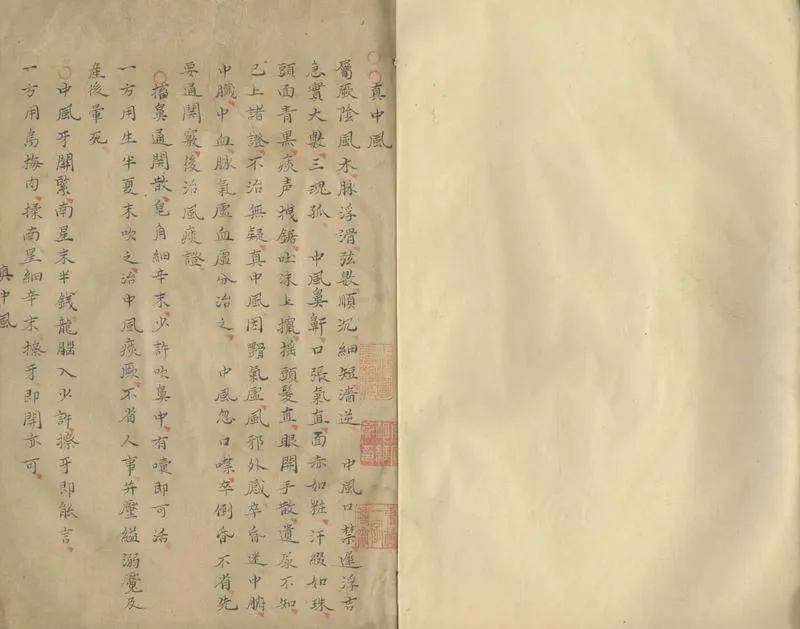 真中風
屬厥陰風木脉浮滑弦數順沉細短濇逆 中風口禁遲浮吉
急實大數三魂孤 中風鼻鼾口張氣直面赤如粧汗綴如珠
頭面青黑痰声拽鋸吐沫上攛揺頭髮直眼開手散遺尿不知
已上諸證不治無疑真中風因氣虛風邪外感卒昏迷中腑
中臟中血脉氣虛血虛分治之 中風忽口噤卒倒昏不省先
要通関竅後治風痰證
搐鼻通関散皂角細辛末少許吹鼻中有嚏即可活
一方用生半夏末吹之治中風痰厥不省人事并壓縊溺魘及
産後暈死
中風牙關緊南星末半錢龍腦入少許擦牙即能言
一方用烏梅肉揉南星細辛末擦牙即開亦可
真中風